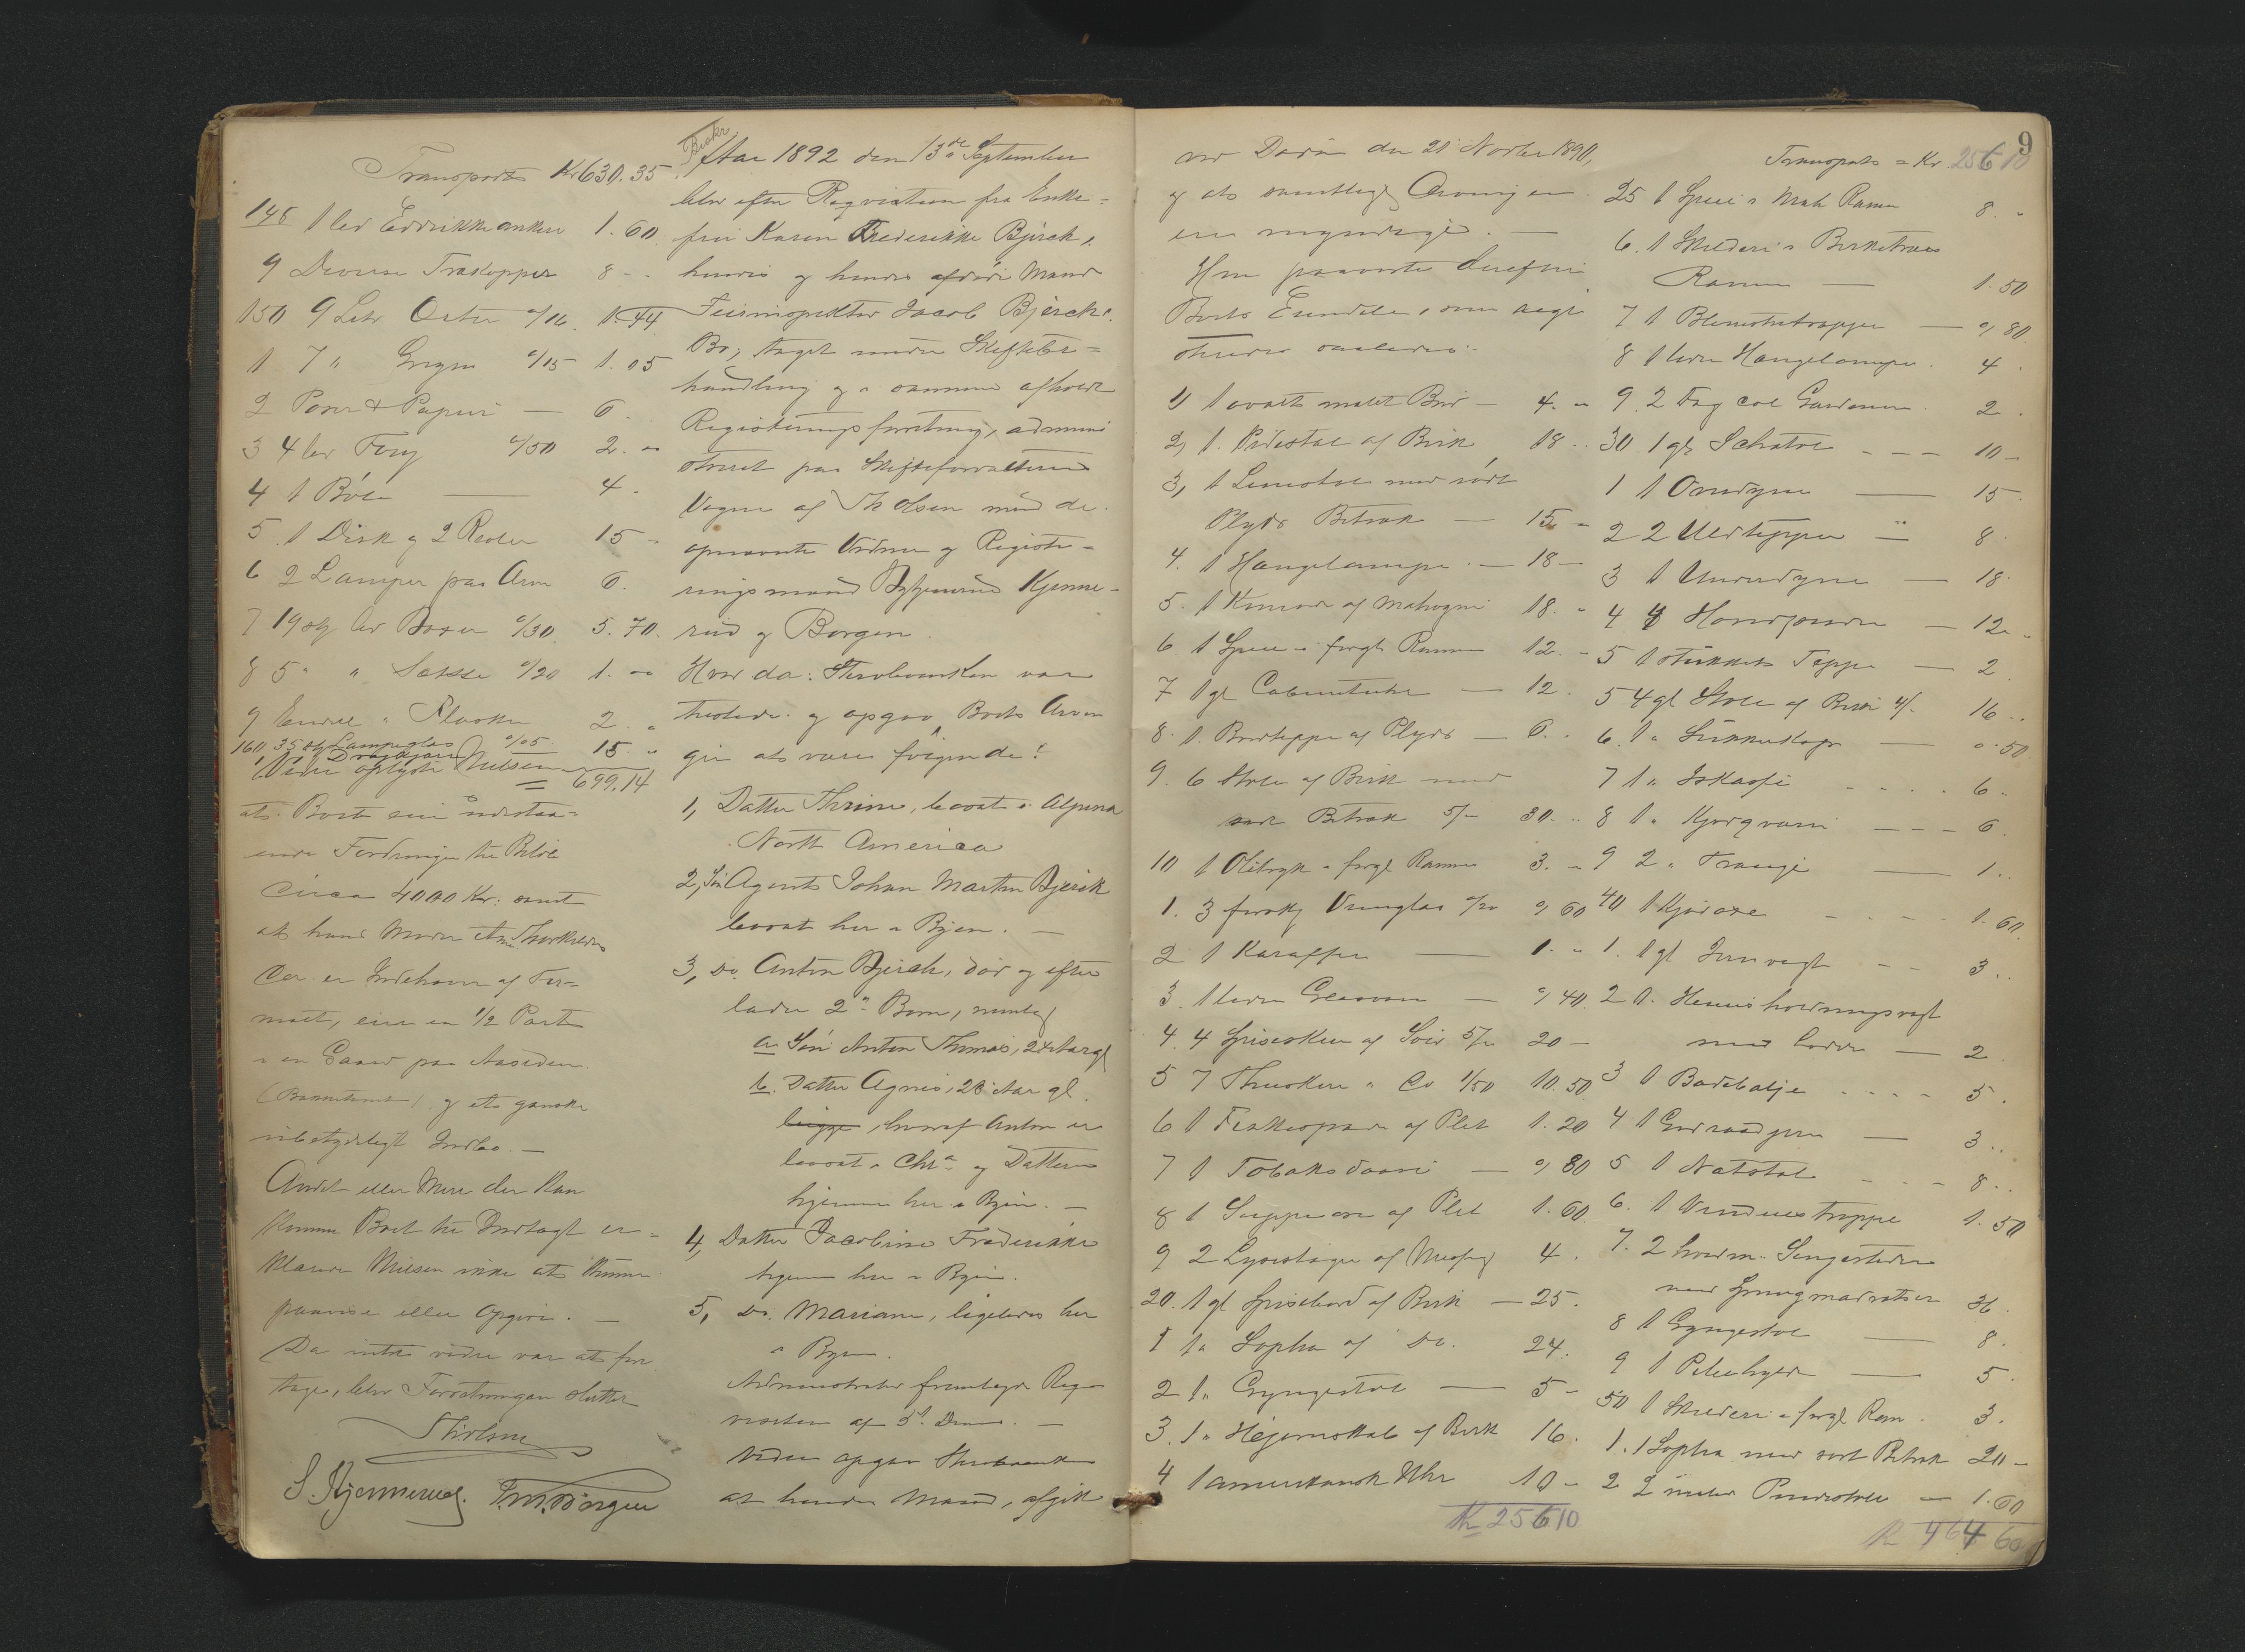 Transport Kr 630.35
148 1 led Eddikkeanker 1.60
9 Diverse Trækopper 8 -
150 9 Letr Orter a/16 1.44
1 7 " Gryn a/15 1.05
2 Poser & Papir — 6.
3 4 led a/50 2. "
4 1 — 4.
5. 1 Disk og 2 Reoler 15 -
6 2 Lamper paa Arm 6.
7 19 stk led a/30 5.70
8 5 " " a/20 1. "
9 Endel " Flasker 2. "
160, 35 stk Lampeglas a/05 15. "
Videre oplyste Nielsen
= 699.14
at Boet eier udestaa=
ende Fordringer til Beløb
circa 4000 Kr. samt
at hans Moder
der er Indehaver af Fir=
maet, eier en 1/2 Part
i en Gaard paa
og et ganske
ubetydeligt Indbo. —
Andet eller Mere der kan
komme Boet til Indtægt er=
klærer Nielsen ikke at kunne
paavise eller opgive. —
Da intet videre var at fore
tage, blev Forretningen sluttet
Th Olsen
S. Kjennerud. Borgen
Beskr.
Aar 1892 den 13de September
blev efter Reqvisition fra Enke=
fru Karen Frederikke Bjerck,
hendes og hendes afdøde Mand
Jacob Bjerck's
Bo, taget under Skiftebe=
handling og i samme afholdt
Registreringsforretning, admini
streret paa Skifteforvalterens
Vegne af Th Olsen med de
opnævnte Vidner og Registe=
ringsmænd Kjenne-
rud og Borgen.
Hvor da: Stervboenken var
tilstede og opgav Boets Arvin
ger at være følgende:
1, Datter Thrine, bosat i Alpena
North America
2, Søn Agent Johan Martin Bjerck
bosat her i Byen. —
3, Do. Anton Bjerck, død og efter
lader 2de Børn, nemlig
a Søn Anton Thomas, 24 Aar gl
b. Datter Agnes, 28 Aar gl.
begge, hvoraf Anton er
bosat i Chra og Datteren
hjemme her i Byen. —
4, Datter Jacobine Frederikke
hjemme her i Byen.
5, Do. Mariane, ligeledes her
i Byen.
Administrator fremlagde Reqvi
sition af 3d Dennes. —
Videre opgav Stervboenken
at hendes Mand, afgik
9
ved Døden den 21 Novbr 1890,
og at samtlige Arvinger
ere myndige. —
Hun paaviste derefter
Boets Eiendele, som regi
streres saaledes:
1, 1 ovalt malet Bord — 4. "
2, 1. Pidestal af Birk 18 ..
3, 1 Lænestol med rødt
Plyds Betræk — 15 "
4. 1 Hængelampe — 18 —
5. 1 Komode af Mahogni 18. "
6. 1 Speil i forgt Ramme 12. "
7 1 gl — 12.
8. 1. Bordteppe af Plyds — 6. .
9. 6 Stole af Birk med
rødt Betræk 5/- 30. ..
10 1 Olitryk i forgl Ramme 3. "
1. 3 forskj Vinglas a/20 0,60
2 1 Karaffer — 1. "
3. 1 liden — 0,40
4. 4 Spiseskeer af Sølv 5/- 20 —
5 7 Theskeer " Do 1/50 10.50
6 1 Fiskespade af Plet 1.20
7 1 Tobaksdaase — 0,80
8 1 Suppeøse af Plet 1.60
9 2 Lysestager af Messing 4.
20. 1 gl Spisebord af Birk — 25.
1 1 " Sopha af Do. 24.
2 1 " Gyngestol — 5 -
3. 1 " Hjørneskab af Birk 16.
4 1 amerikansk Uhr 10 -
Kr 256 10
Transport = Kr 256 10
25 1 Speil i Mah Ramme 8. "
6. 1 Skilderi i Birketræes
Ramme — 1.50
7 1 Blomstertrappe — 0,80
8 1 liden Hængelampe. 4.
9. 2 Fag col Gardiner. 2.
30 1 gl Schatol - - - 10 -
1 1 Overdyne — 15.
2 2 Uldtepper — 8.
3 1 Underdyne — 18.
4 4 Hovedpuder — 12. "
5 1 strikket Teppe — 2.
5 4 gl Stole af Birk 4/- 16 ..
6. 1 " — 0.50
7 1 " - - - - 6 "
8 1 " Kjødqværn - - - 6.
9 2 " — 1..
40 1 Kjødøxe - - - - 1.60
1. 1 gl Jernvægt - - 3..
2 1. Huusholdningsvægt
med Lodder — 2.
3 1 Badebalje - - - - 5.
4 1 — 3..
5 1 Natstol - - - 8..
6. 1 Vinduestrappe 1.50
7. 2 hvidm. Sengesteder
med Springmadratser 36.
8 1 Gyngestol — 8.
9 1 — 5.
50 1 Skilderi i forgl Ram. 3.
1. 1 Sopha med sort Betræk 20 —
2 2 — 1.60
Kr 464 60